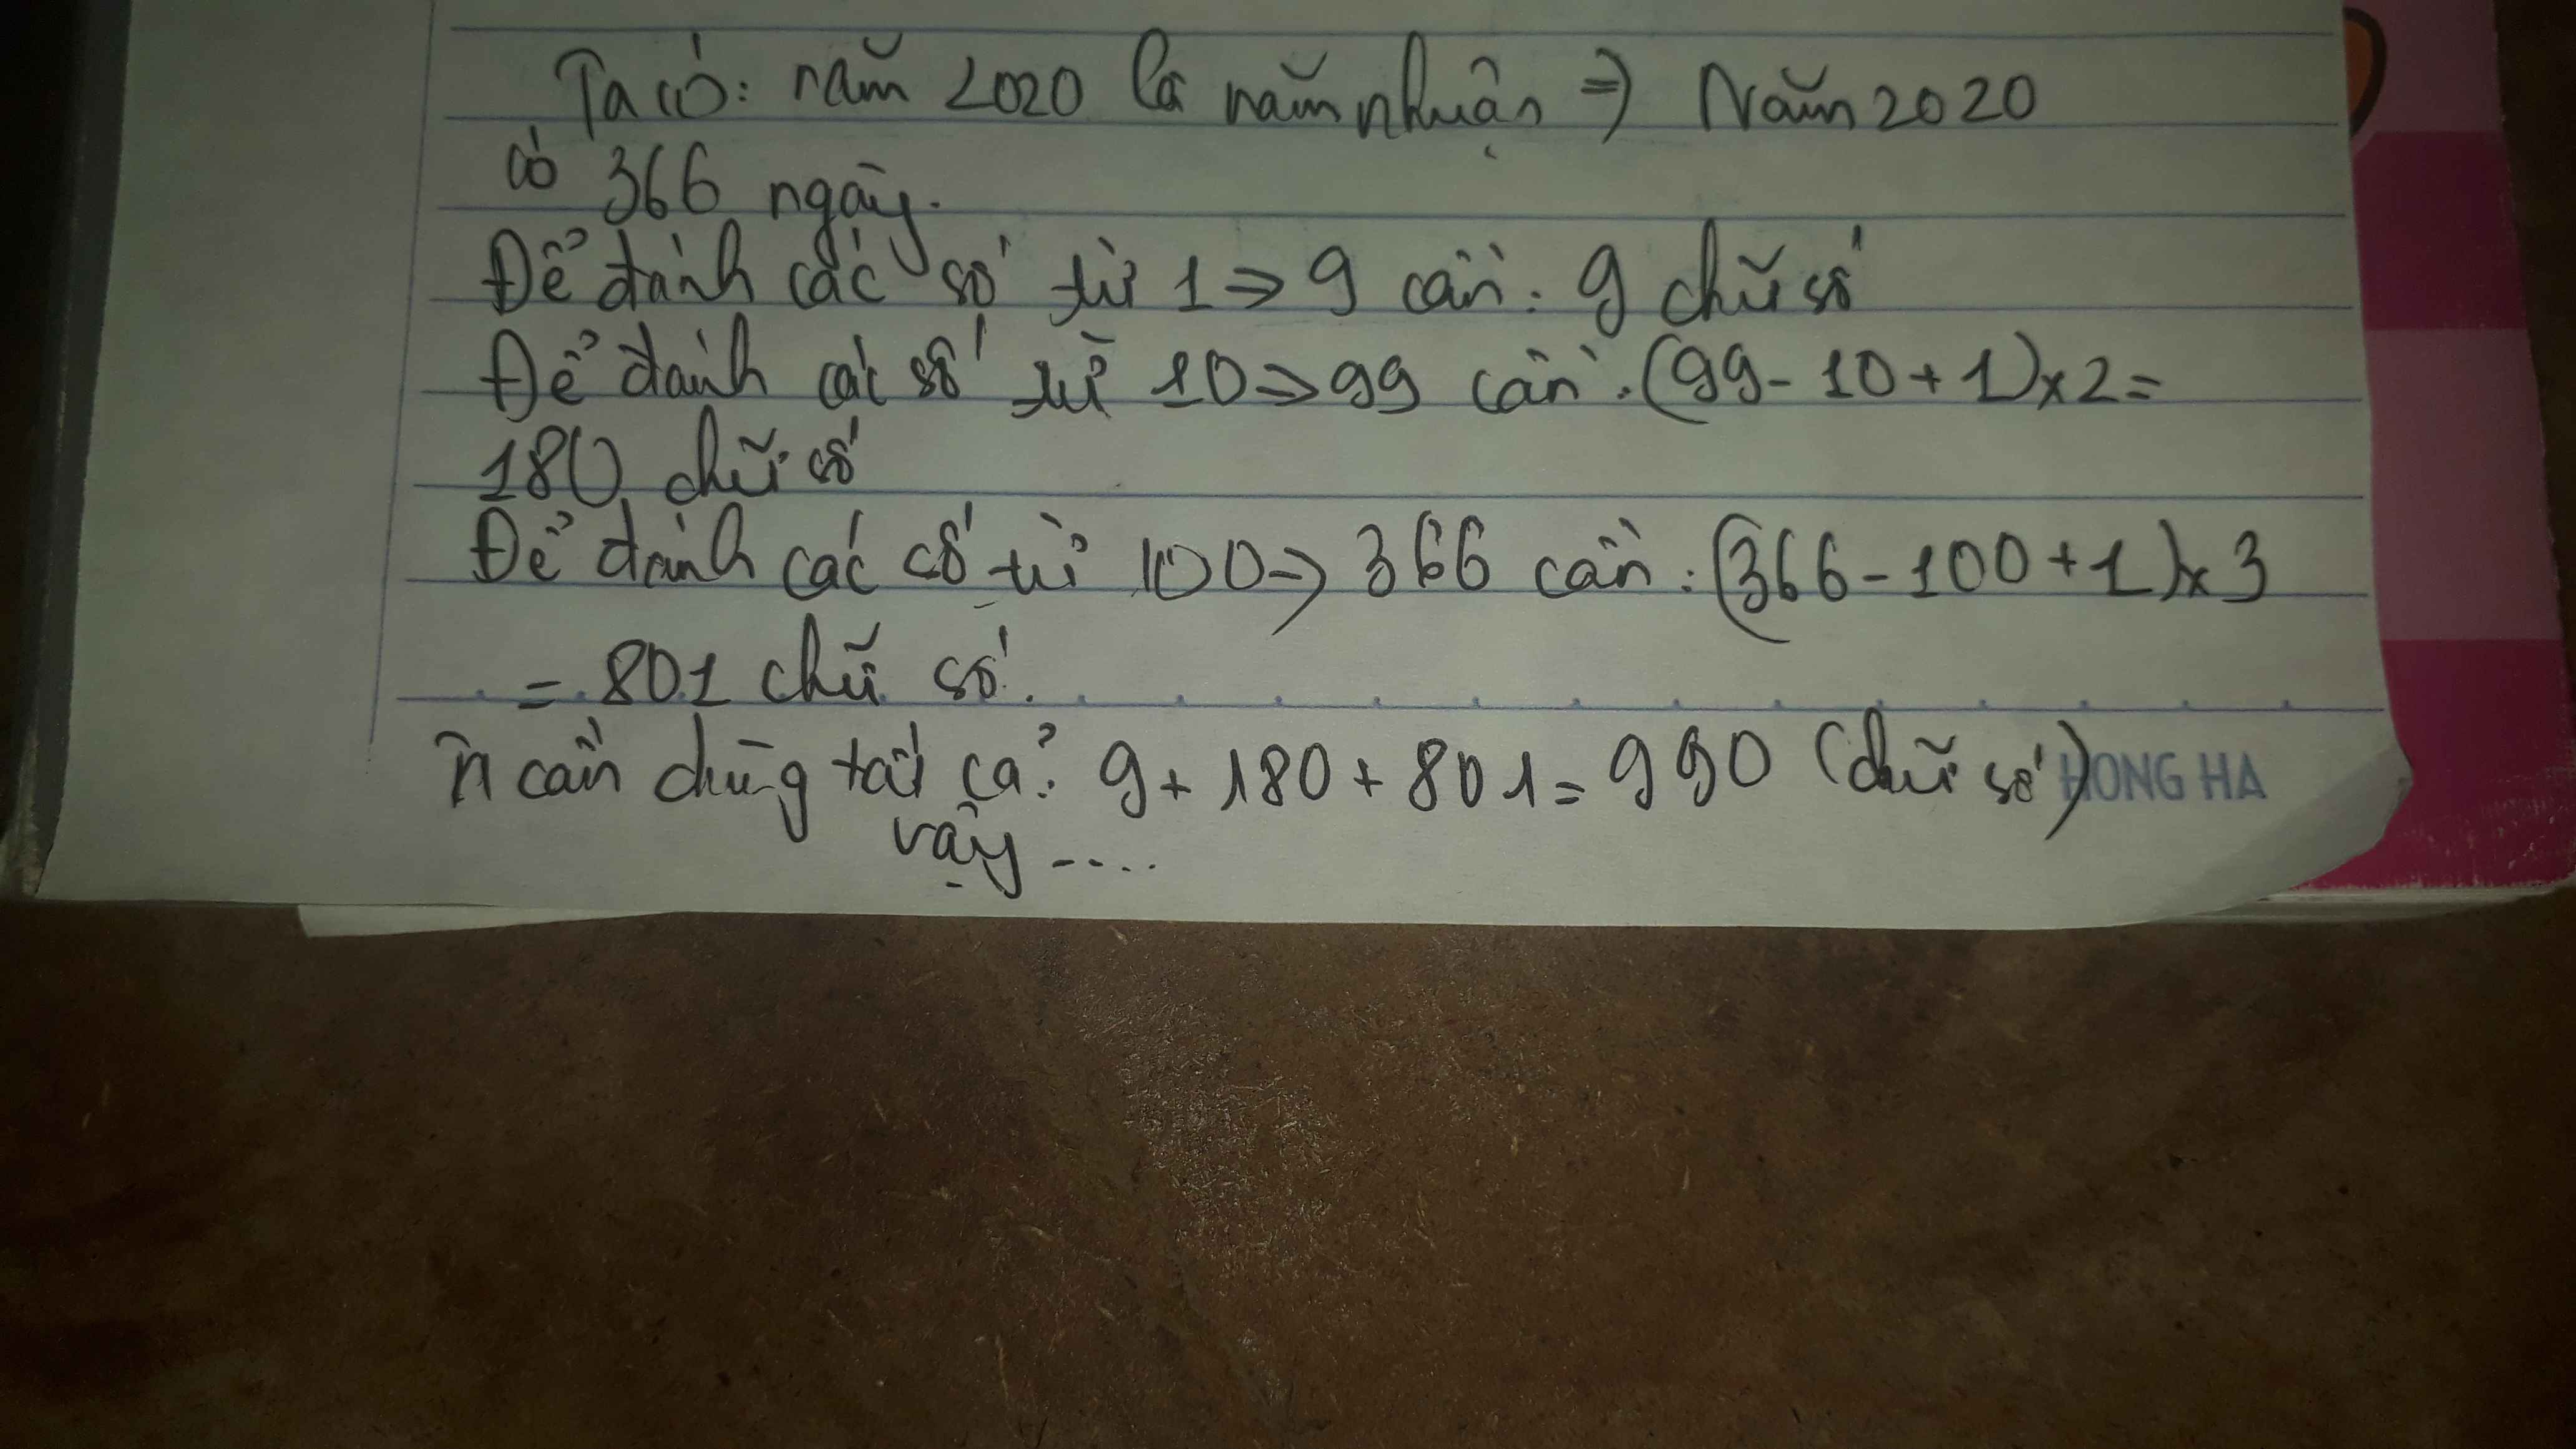 Ta có: năm 2020 là năm nhuận => Năm 2020
có 366 ngày.
Để đánh các số từ 1 => 9 cần: 9 chữ số
Để đánh các số từ 10 => 99 cần: (99 - 10 + 1) x 2 =
180 chữ số
Để đánh các số từ 100 => 366 cần: (366 - 100 + 1) x 3
= 801 chữ số.
cần dùng tất cả: 9 + 180 + 801 = 990 (chữ số)
HONG HA
vậy ....